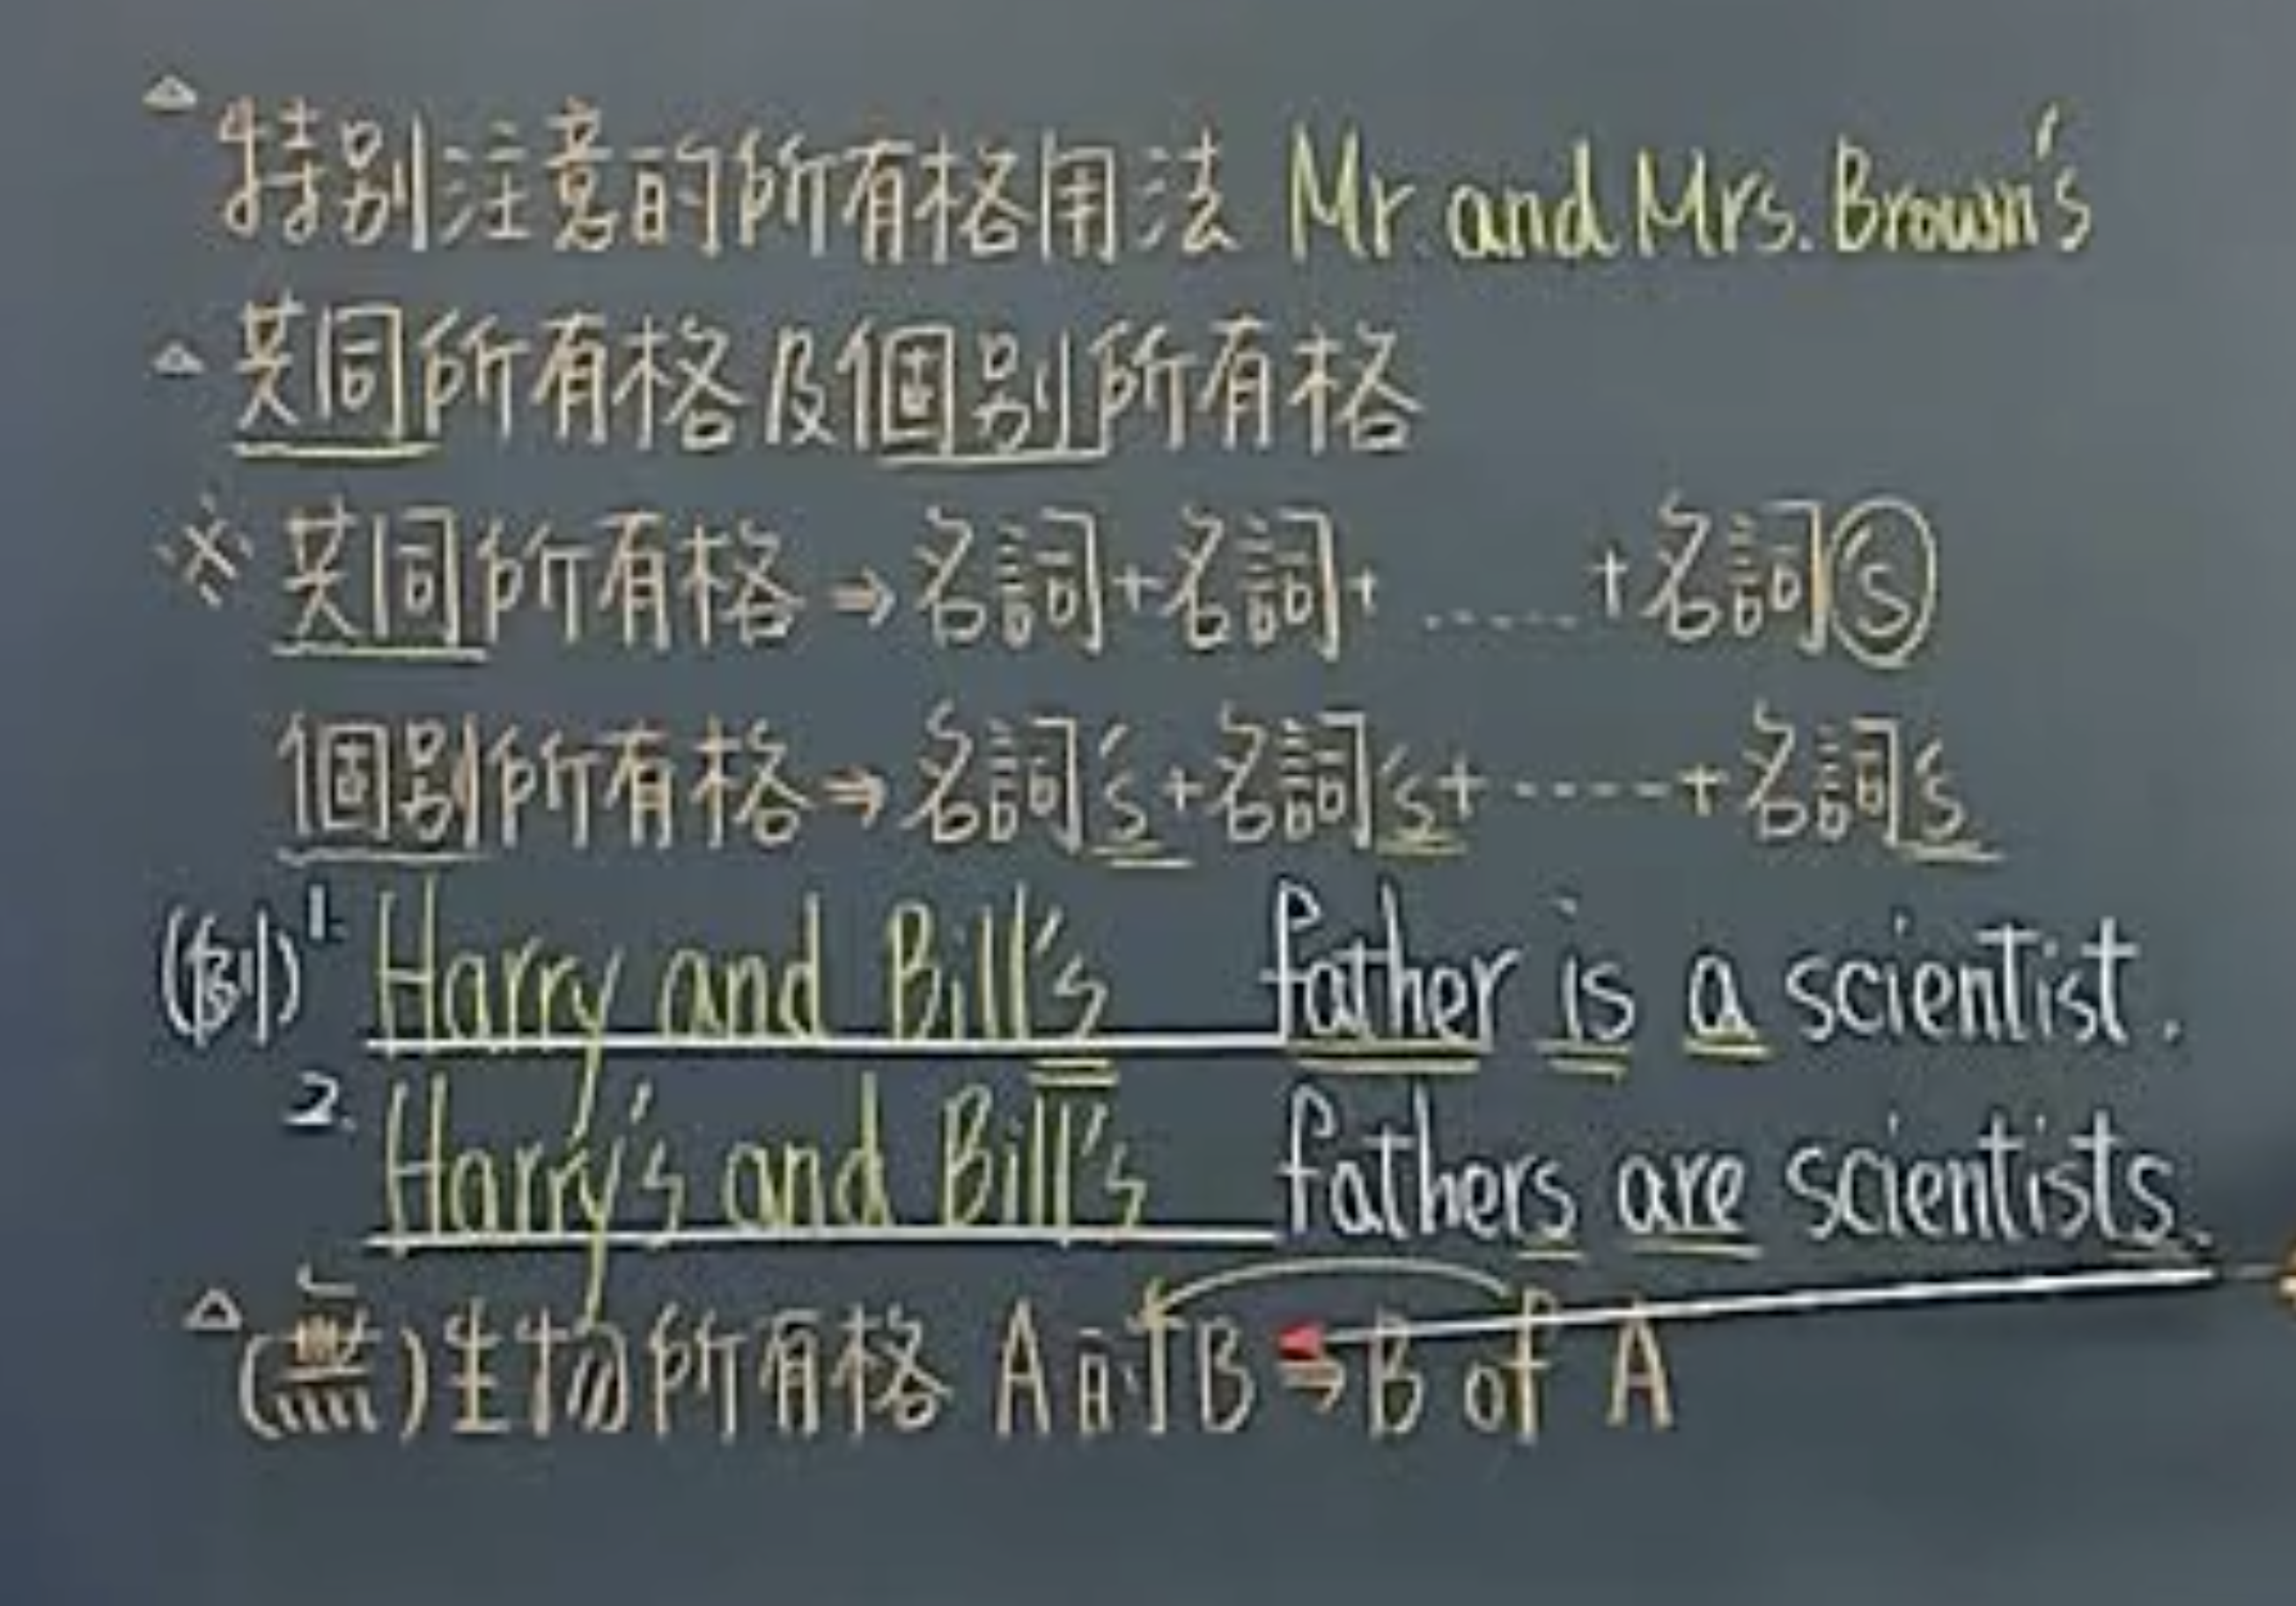 △特別注意的所有格用法 Mr. and Mrs. Brown's
△共同所有格及個別所有格
※共同所有格⇒名詞+名詞+ ...... +名詞's
個別所有格⇒名詞's+名詞's+-----+名詞's
(例) 1. Harry and Bill's father is a scientist.
2. Harry's and Bill's fathers are scientists.
△(無)生物所有格 A的B⇒B of A